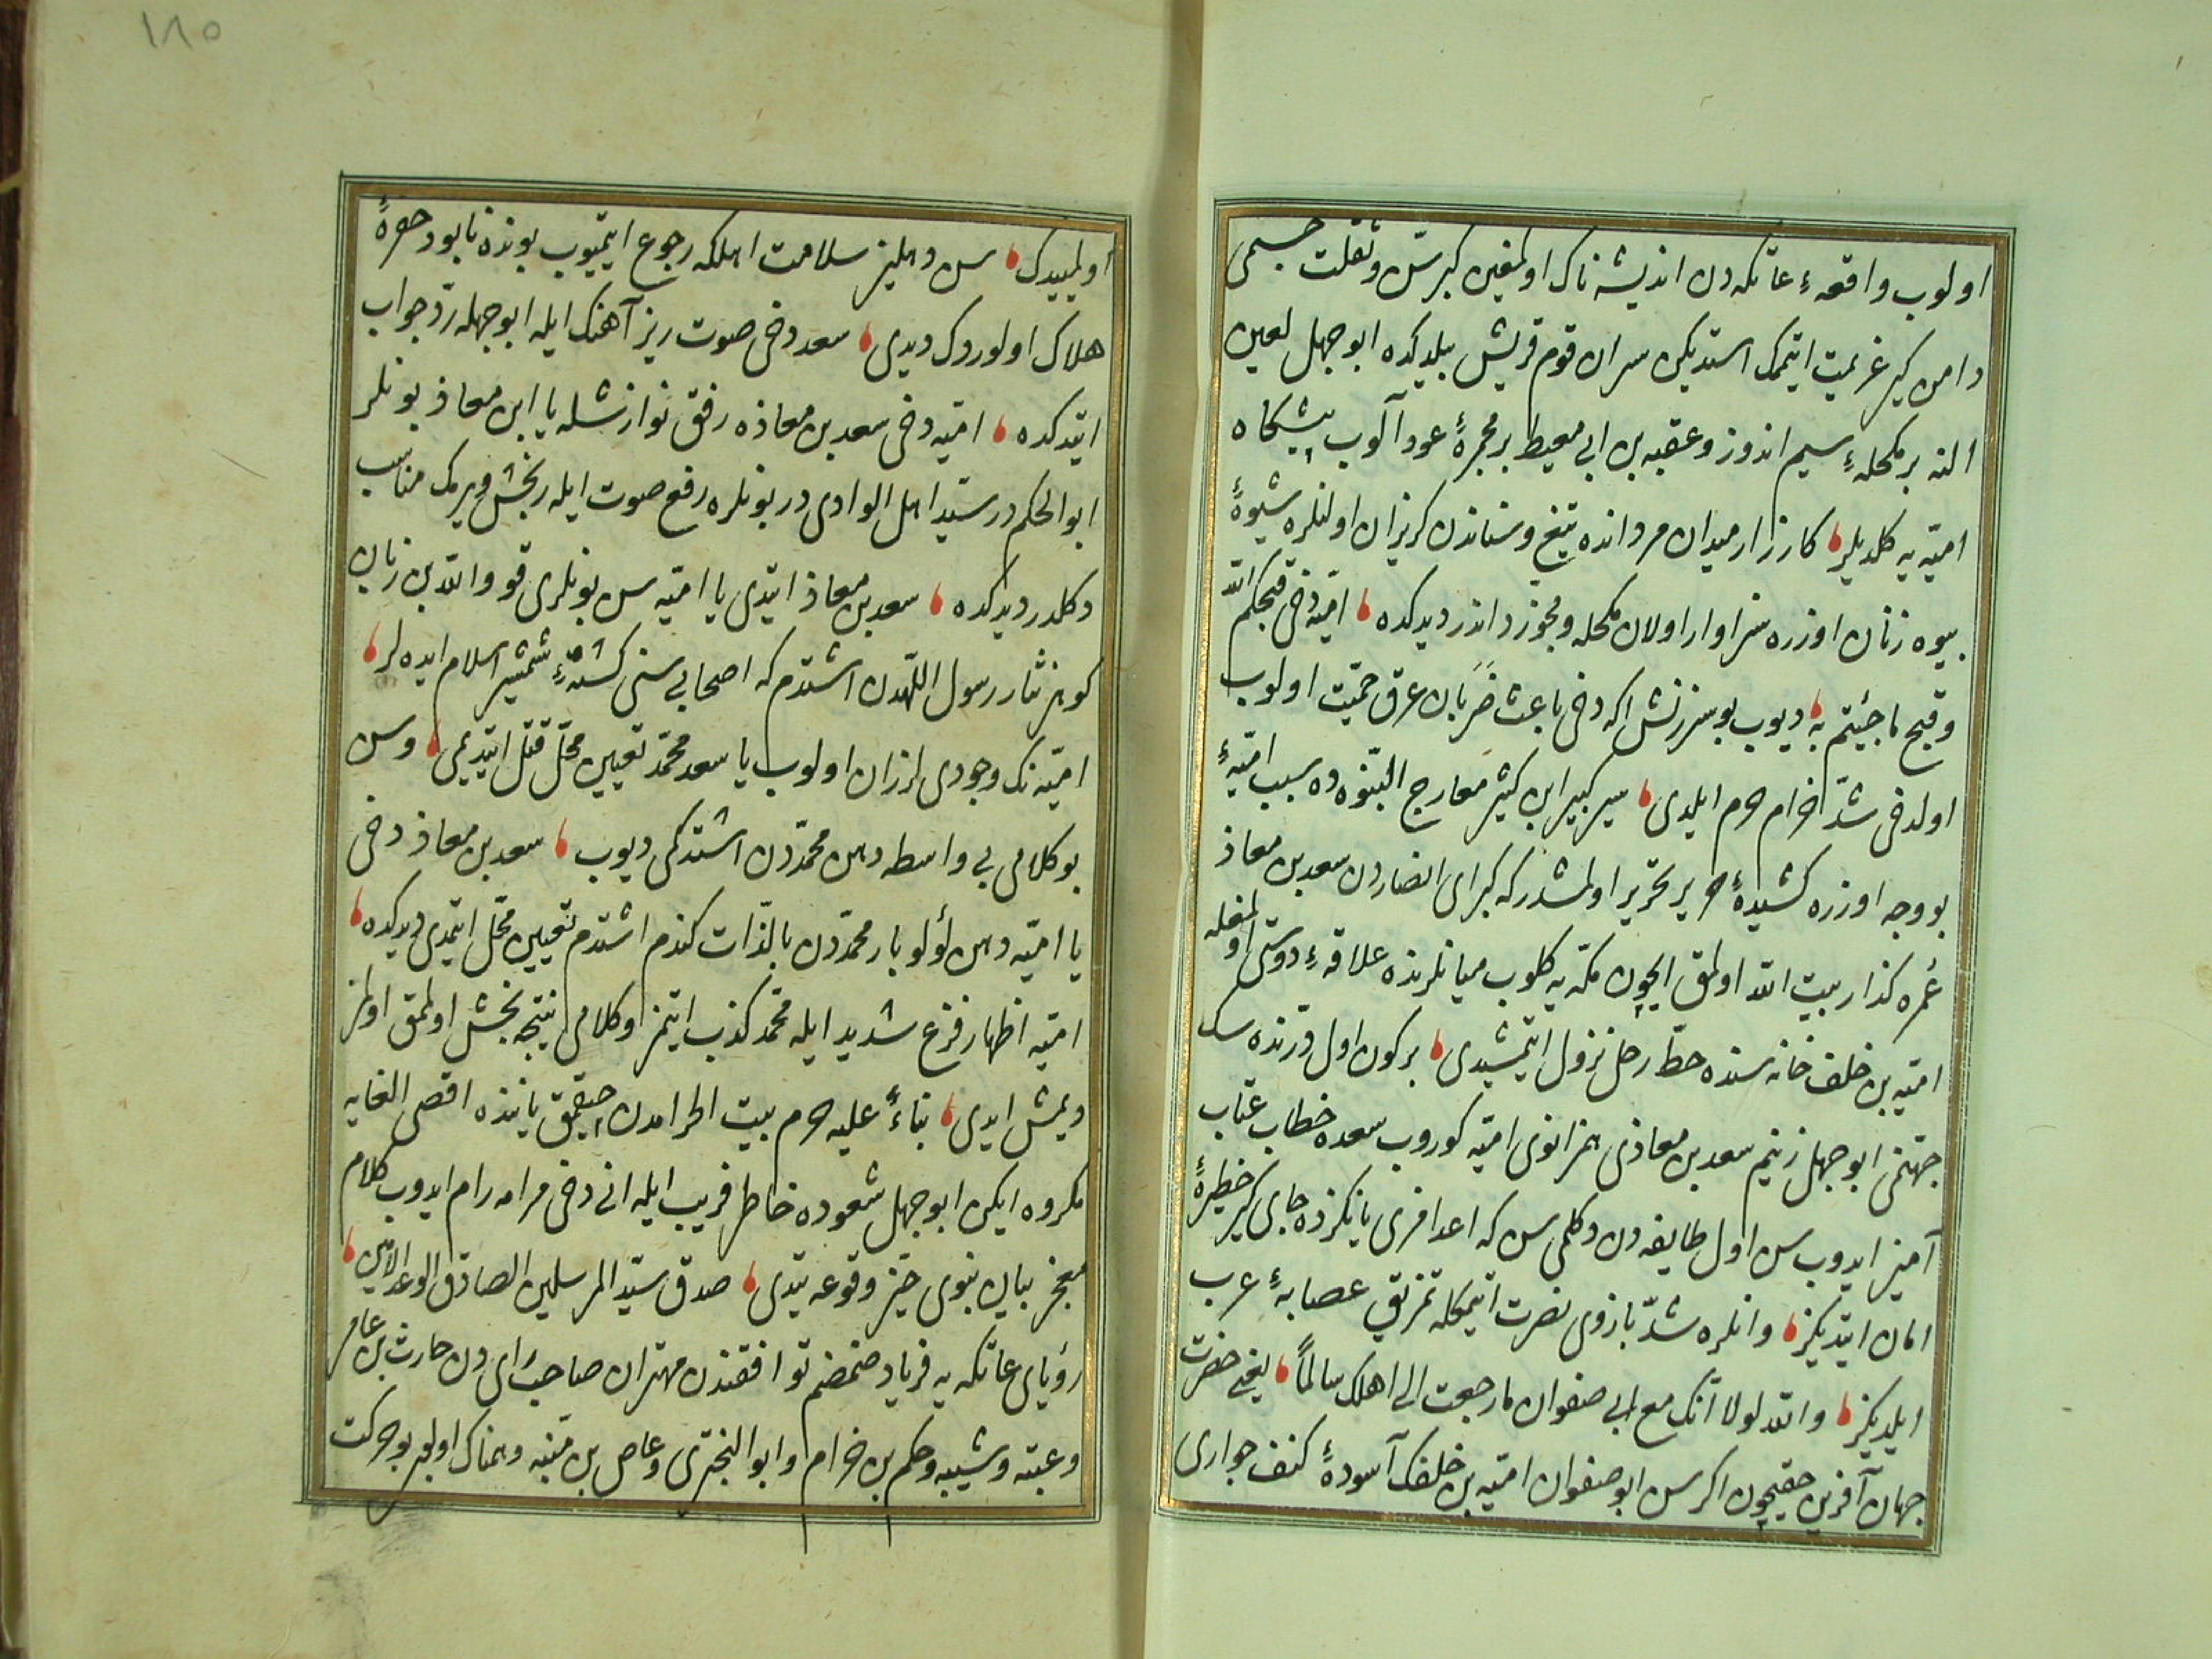 اولوب واقعهٔ عاتکه دن اندیشه ناک اولمغین کبر سن و ثقلت جسمی
دامن کیر عزیمت ایتمک استدیکن سران قوم قریش بیلدیکده ابو جهل لعین
النه بر مکحلهٔ سیم اندوز و عقبه بن ابی معیط بر مجمرهٔ عود آلوب پیشکاه
امیّه یه کلدیلر کارزار میدان مردانده تیغ و سناندن کریزان اولنلره شیوهٔ
بیوه زنان اوزره سزاوار اولان مکحله و مجمره در دیدکده امیّه دخی قبحکم الله
و قبح ما جئتم به دیوب بو سرزنش اکه دخی باعث ضربان عرق حمیّت اولوب
اولدخی شدّ احرام حرم ایلدی سیر کبیر ابن کثیر معارج النبوّه ده سبب امیّهٔ
بو وجه اوزره کشیدهٔ حریر تحریر اولمشدر که کبرای انصاردن سعد بن معاذ
عُمره کذار بیت الله اولمق ایچون مکّه یه کلوب میانلرنده علاقهٔ دوستی اولمغله
امیّه بن خلف خانه سنده حطّ رحل نزول ایتمشیدی بر کون اول درنده سک
جهنّمی ابو جهل زنیم سعد بن معاذی همزانوی امیّه کوروب سعده خطاب عتاب
آمیز ایدوب سن اول طایفه دن دکلمی سن که اعدامزی یانکزده جای کیر خطیرهٔ
امان ایتدیکز و انلره شدّ بازوی نصرت ایتمکله تمزیق عصابهٔ عرب
ایلدیکز والله لولا انّک مع ابی صفوان ما رجعت الی اهلک سالماً یعنی حضرت
جهان آفرین حقیچون اکر سن ابو صفوان امیّه بن خلفک آسودهٔ کنف جواری
اولمییدک سن دهلیز سلامت اهلکه رجوع ایتمیوب بونده نابود حفرهٔ
هلاک اولوردک دیدی سعد دخی صوت ریز آهنک ایله ابو جهله ردّ جواب
ایتدکده امیّه دخی سعد بن معاذه رفق نوازشله یا ابن معاذ بونلر
ابو الحکم در سیّد اهل الوادی در بونلره رفع صوت ایله رنجش ویرمک مناسب
دکلدر دیدکده سعد بن معاذ ایتدی یا امیّه سن بونلری قو والله بن زبان
کوهر نثار رسول اللّهدن اشتدم که اصحابی سنی کشتهٔ شمشیر اسلام ایده لر
امیّه نک وجودی لرزان اولوب یا سعد محمّد تعیین محلّ قتل ایتدیمی و سن
بو کلامی بی واسطه دهن محمّددن اشتدکمی دیوب سعد بن معاذ دخی
یا امیّه دهن لؤلؤ بار محمّددن بالذّات کندم اشتدم تعیین محلّ ایتمدی دیدکده
امیّه اظهار فزع شدید ایله محمّد کذب ایتمز و کلامی نتیجه بخش اولمق اولمز
دیمش ایدی بناءً علیه حرم بیت الحرامدن چیقمق یاننده اقصی الغایه
مکروه ایکن ابو جهل شعوده خاطر فریب ایله انی دخی مرامه رام ایدوب کلام
معجز بیان نبوی حیّز وقوعه یتدی صدق سیّد المرسلین الصادق الوعد الامین
رؤیای عاتکه یه فریاد ضمضم توافقندن مهتران صاحب رای دن حارث بن عامر
و عتبه و شیبه و حکم بن حزام و ابو البختری و عاص بن منبّه وهمناک اولوب بو حرکت
١٨٥